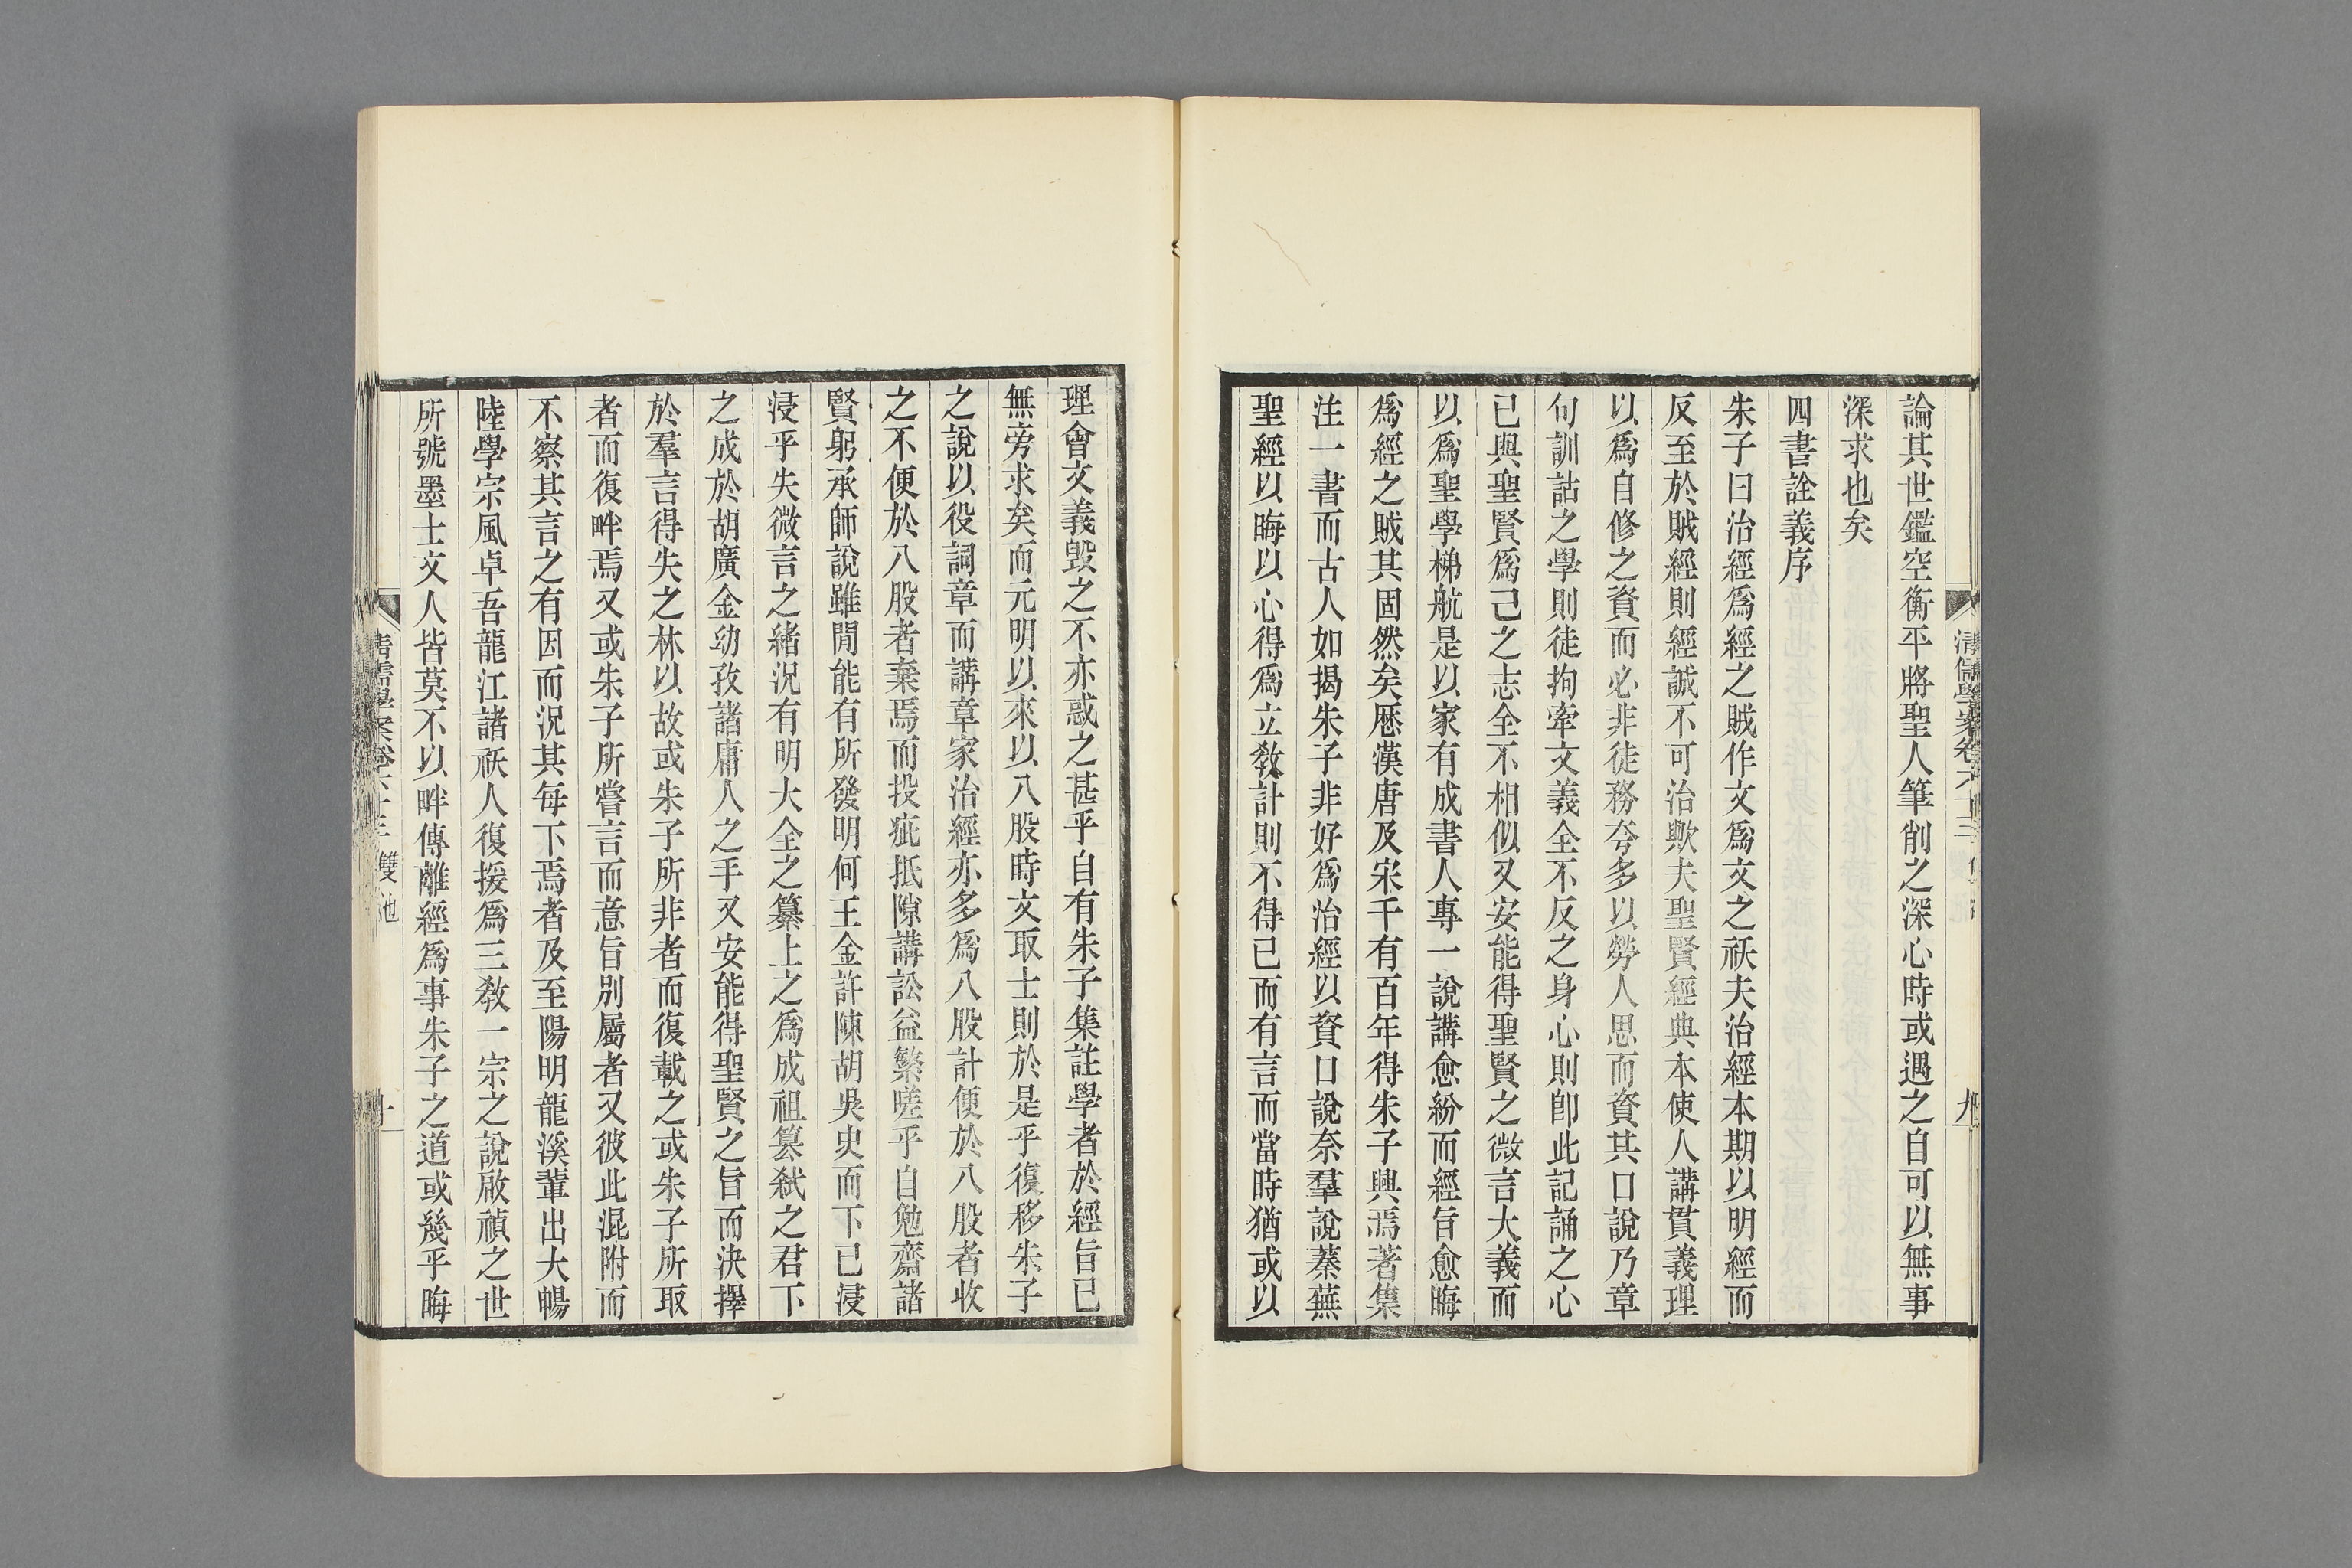 清儒學案卷六十三
九
論其世鑑空衡平將聖人筆削之深心時或遇之自可以無事
深求也矣
四書詮義序
朱子曰治經爲經之賊作文爲文之祅夫治經本期以明經而
反至於賊經則經誠不可治歟夫聖賢經典本使人講貫義理
以爲自修之資而必非徒務夸多以勞人思而資其口說乃章
句訓詁之學則徒拘牽文義全不反之身心則卽此記誦之心
已與聖賢爲己之志全不相似又安能得聖賢之微言大義而
以爲聖學梯航是以家有成書人專一說講愈紛而經旨愈晦
爲經之賊其固然矣歷漢唐及宋千有百年得朱子興焉著集
注一書而古人如揭朱子非好爲治經以資口說奈羣說蓁蕪
聖經以晦以心得爲立敎計則不得已而有言而當時猶或以
理會文義毀之不亦惑之甚乎自有朱子集註學者於經旨已
無旁求矣而元明以來以八股時文取士則於是乎復移朱子
之說以役詞章而講章家治經亦多爲八股計便於八股者收
之不便於八股者棄焉而投疵抵隙講訟益繁嗟乎自勉齋諸
賢躬承師說雖閒能有所發明何王金許陳胡吳史而下已浸
浸乎失微言之緒況有明大全之纂上之爲成祖篡弒之君下
之成於胡廣金幼孜諸庸人之手又安能得聖賢之旨而決擇
於羣言得失之林以故或朱子所非者而復載之或朱子所取
者而復畔焉又或朱子所嘗言而意旨別屬者又彼此混附而
不察其言之有因而況其每下焉者及至陽明龍溪輩出大暢
陸學宗風卓吾龍江諸祅人復援爲三敎一宗之說啟禎之世
所號墨士文人皆莫不以畔傳離經爲事朱子之道或幾乎晦
清儒學案卷六十三 雙池
十